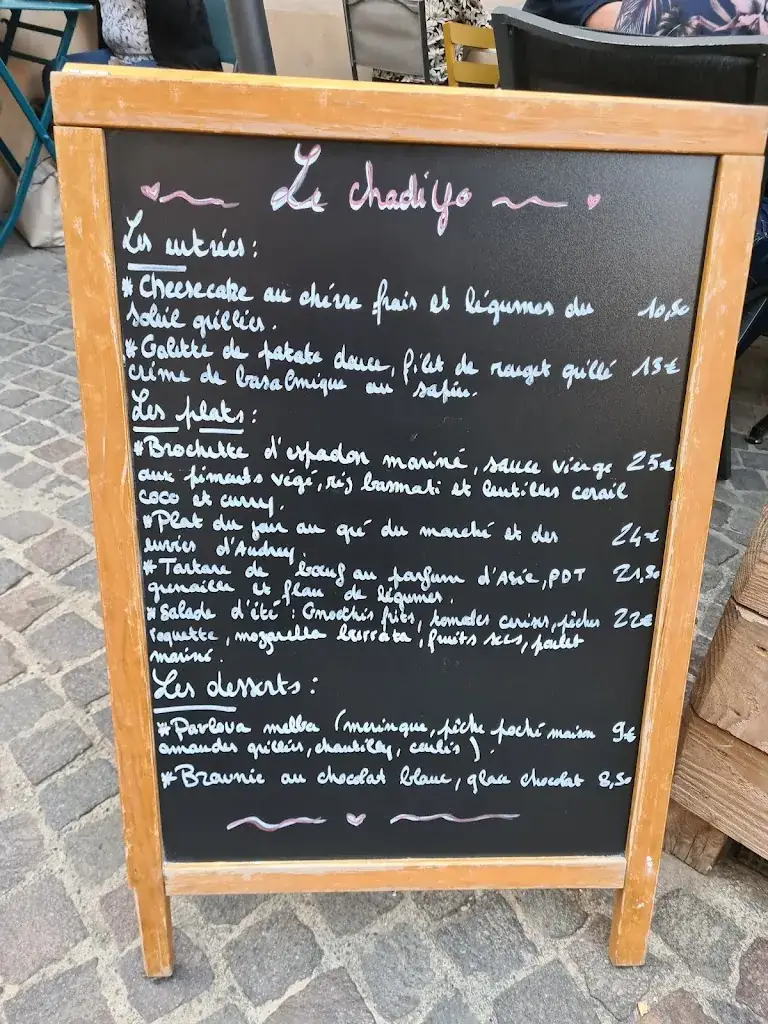 Le chadiyo
Les entrées :
* Cheesecake au chèvre frais et légumes du 10,50
soleil grillés.
* Galette de patate douce, filet de rouget grillé 13€
crème de basalmique au sapin.
Les plats :
* Brochette d'espadon mariné, sauce vierge 25€
aux piments végé, riz basmati et lentilles corail
coco et curry.
* Plat du jour au gré du marché et des 24€
envies d'Audrey.
* Tartare de boeuf au parfum d'Asie, PDT 21,50
grenaille et flan de légumes.
* Salade d'été : Gnocchis frits, tomates cerises, pêches 22€
roquette, mozarella burrata, fruits secs, poulet
mariné.
Les desserts :
* Pavlova melba (meringue, pêche poché maison 9€
amandes grillées, chantilly, coulis).
* Brownie au chocolat blanc, glace chocolat 8,50